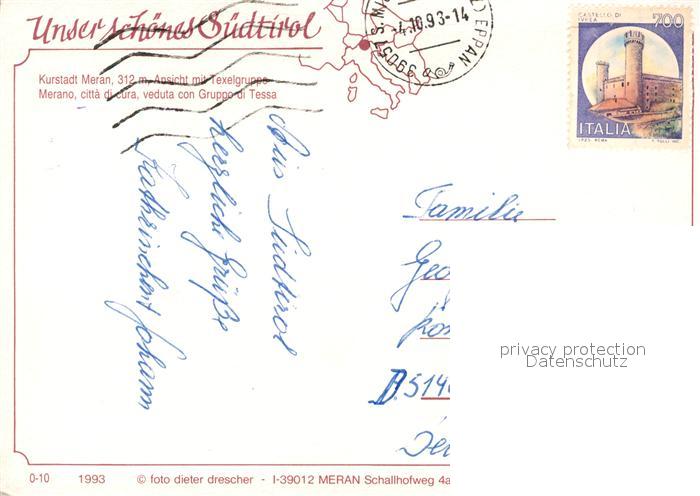 Unser schönes Südtirol
Kurstadt Meran, 312 m, Ansicht mit Texelgruppe
Merano, città di cura, veduta con Gruppo di Tessa
EPPAN
-4.10.93-14
39057 S. M
CASTELLO DI
IVREA
700
ITALIA
I.P.Z.S. ROMA
Aus Südtirol
herzliche Grüße
Johann
Familie
Geo
D. 514
privacy protection
Datenschutz
0-10 1993 © foto dieter drescher - I-39012 MERAN Schallhofweg 4a